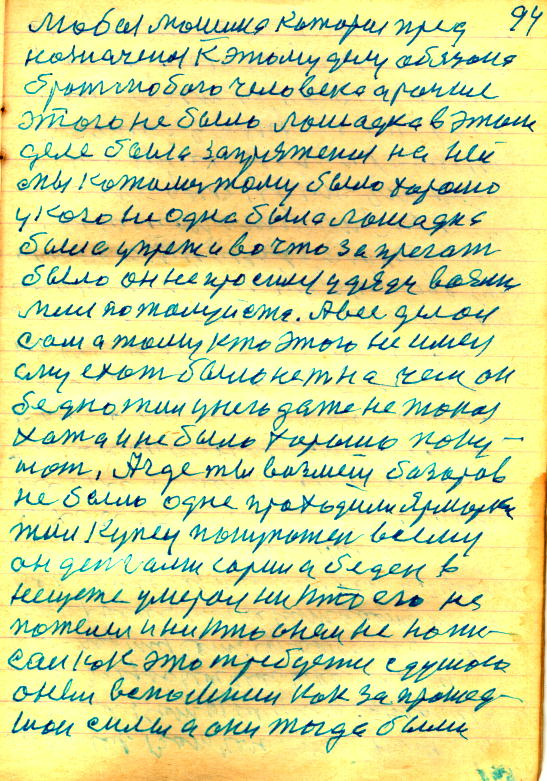 94
любая машина которая пред
назначена к этому делу обязана
брат любого человека а раньше
этого не было лошадка в этом
деле была запряжена на ней
мы кажному тому было хорошо
у кого не одна была лошадка
была упрежи во что запрегат
было он не просил у дяди возми
меня пожалуйста. А все делал
сам а тому кто этого не имел
ему ехат было нет на чем он
бедно жил у него даже не такая
хата и не было хорошо поку-
шат, А где ты возмеш базаров
не было одне проходили Ярмарки
жил купец покупател всему
он денгами сорил а беден в
нещете умерал никто его не
пожелел и никто о нем не напи-
сал как это требуется с душою
о нем вспомнил как за прошед-
шои силы а они тогда были